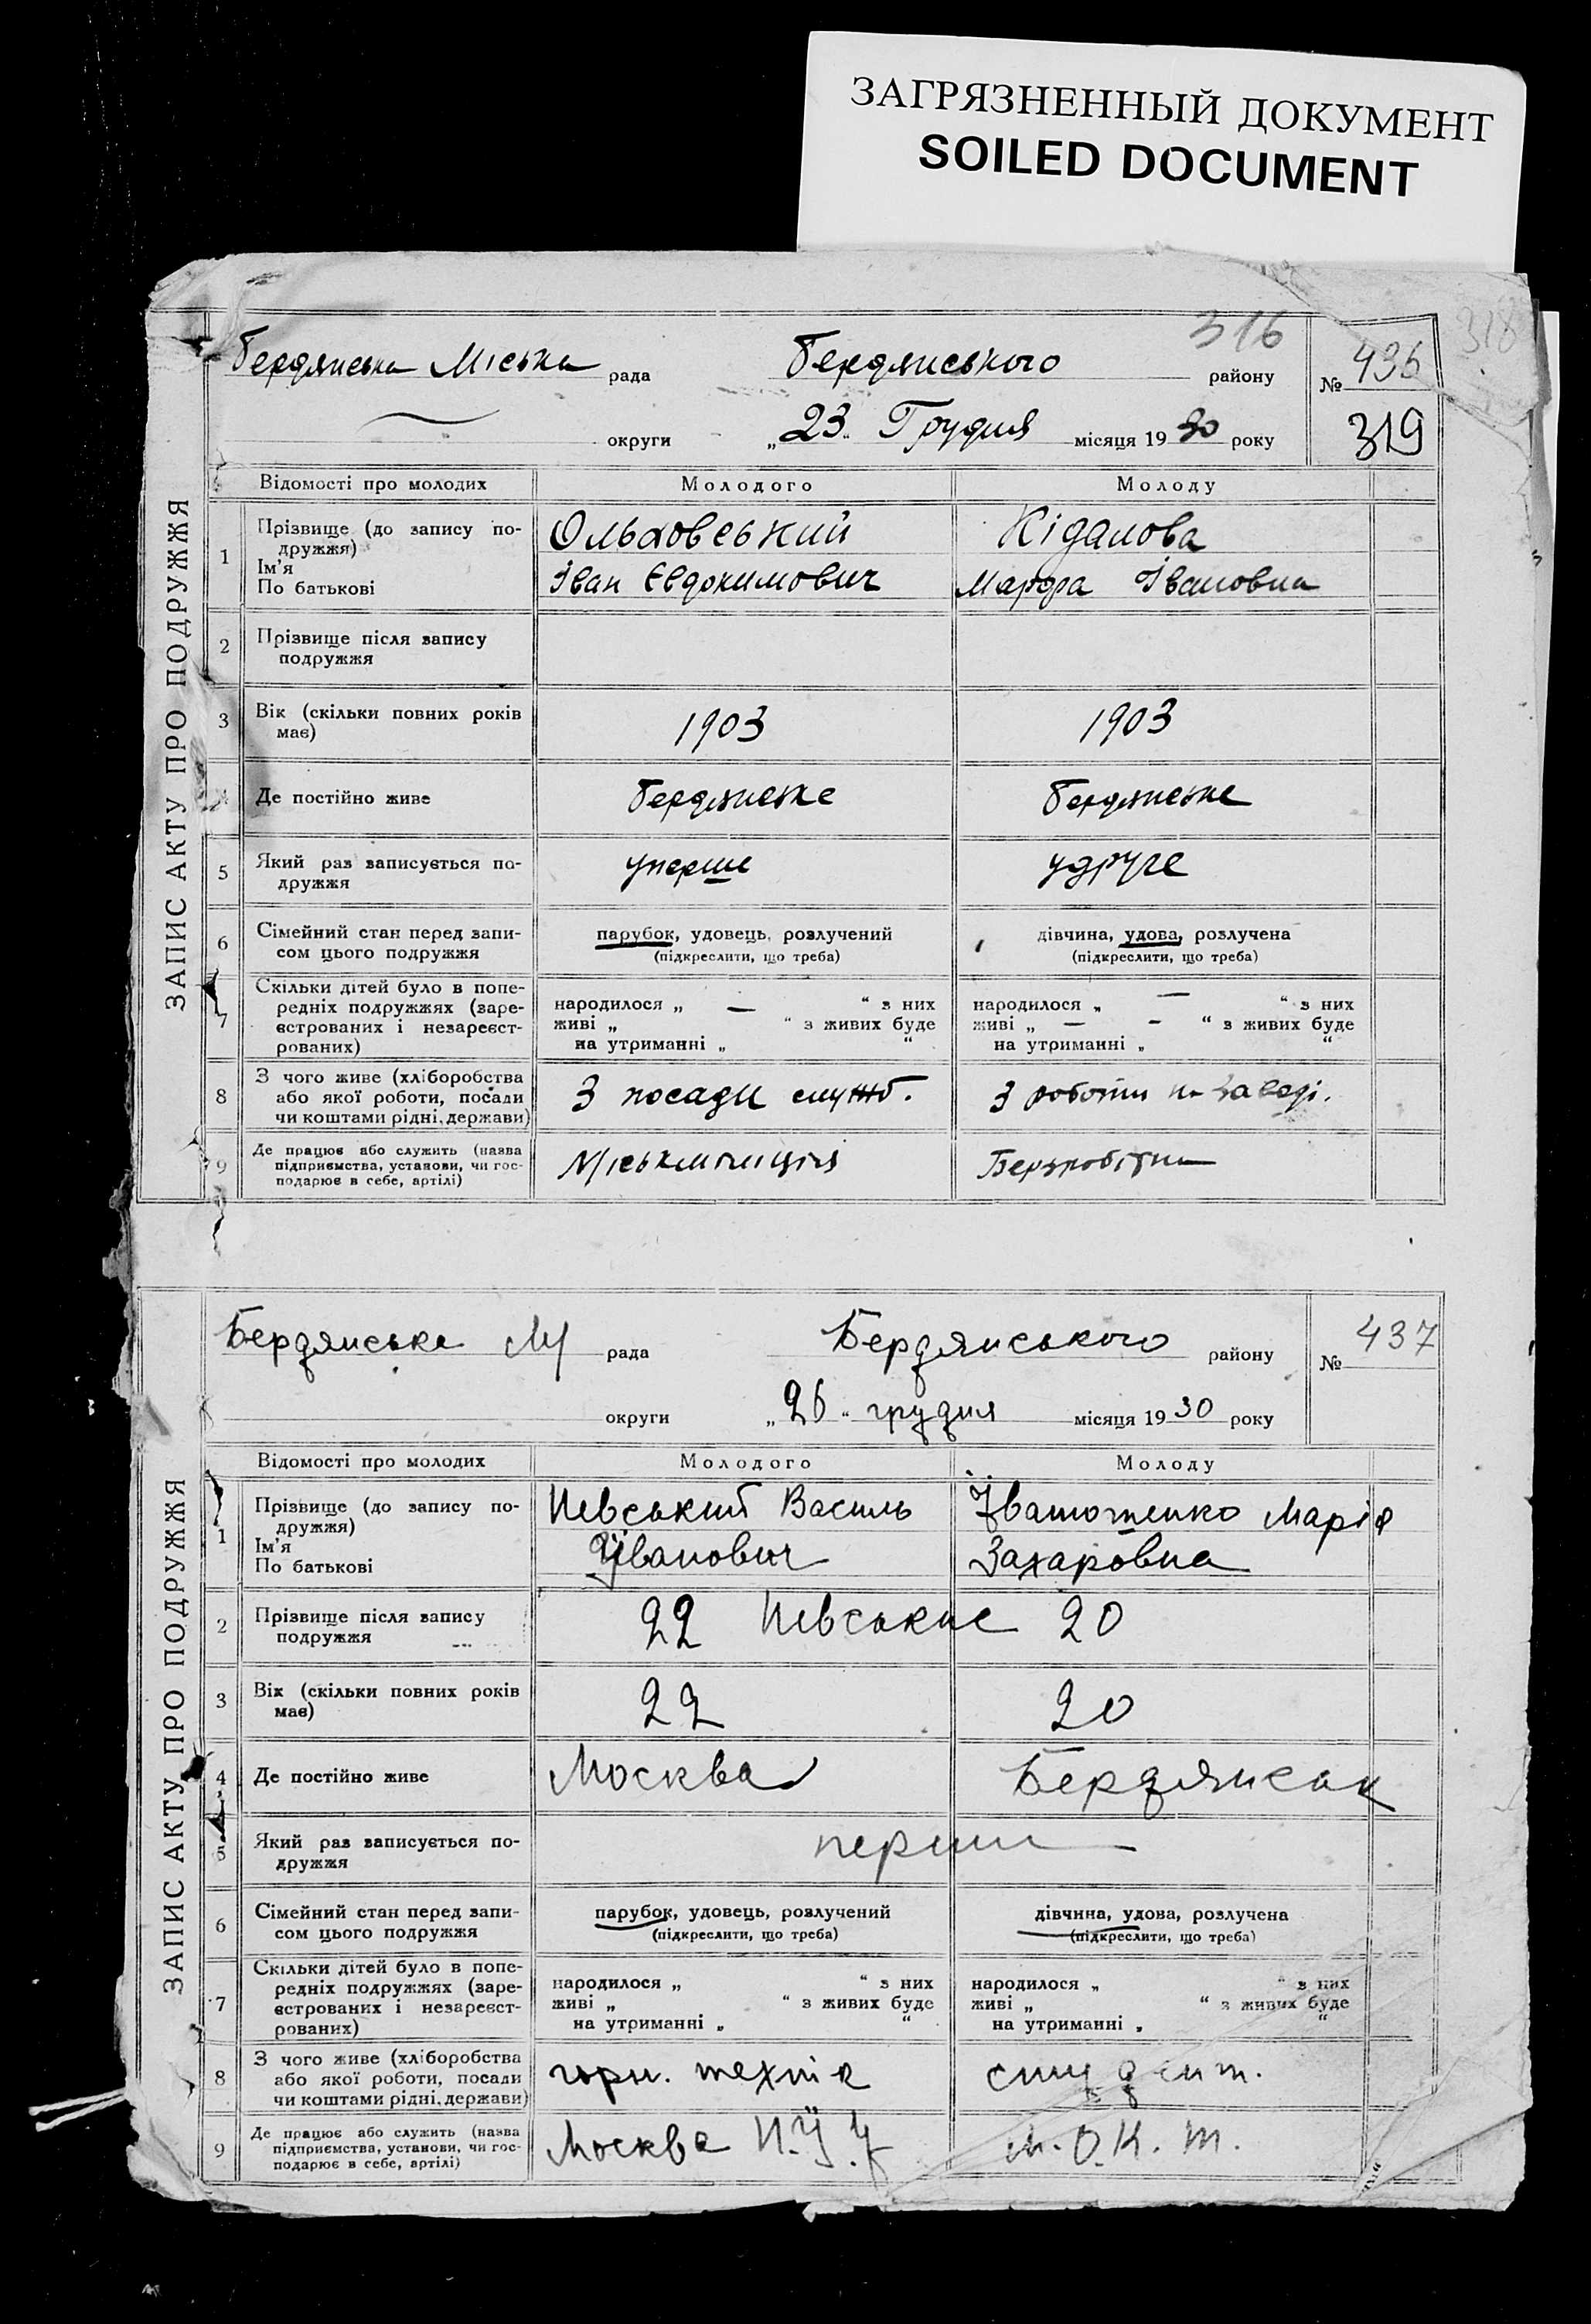 ЗАГРЯЗНЕННЫЙ ДОКУМЕНТ
SOILED DOCUMENT
316
318
ЗАПИС АКТУ ПРО ПОДРУЖЖЯ
Бердянська Міська рада Бердянського району № 436
округи „23“ Грудня місяця 1930 року 319
Відомості про молодих Молодого Молоду
1 Прізвище (до запису по-
дружжя) Ольховський Кідалова
Ім'я
По батькові Іван Євдокимович Марфа Івановна
2 Прізвище після запису
подружжя
3 Вік (скільки повних років
має) 1903 1903
4 Де постійно живе Бердянське Бердянське
5 Який раз записується по-
дружжя уперше удруге
6 Сімейний стан перед запи-
сом цього подружжя парубок, удовець, розлучений дівчина, удова, розлучена
(підкреслити, що треба) (підкреслити, що треба)
7 Скільки дітей було в попе-
редніх подружжях (заре-
єстрованих і незареєст-
рованих) народилося „ — “ з них народилося „ — “ з них
живі „ “ з живих буде живі „ — - “ з живих буде
на утриманні „ “ на утриманні „ “
8 З чого живе (хліборобства
або якої роботи, посади
чи коштами рідні, держави) З посади служб. З роботи на заводі.
9 Де працює або служить (назва
підприємства, установи, чи гос-
подарює в себе, артілі) Міськміліція
ЗАПИС АКТУ ПРО ПОДРУЖЖЯ
Бердянська М рада Бердянського району № 437
округи „26“ грудня місяця 1930 року
Відомості про молодих Молодого Молоду
1 Прізвище (до запису по-
дружжя) Невський Василь Марія
Ім'я
По батькові Іванович Захаровна
2 Прізвище після запису
подружжя 22 Невські 20
3 Вік (скільки повних років
має) 22 20
4 Де постійно живе Москва Бердянськ
5 Який раз записується по-
дружжя перший
6 Сімейний стан перед запи-
сом цього подружжя парубок, удовець, розлучений дівчина, удова, розлучена
(підкреслити, що треба) (підкреслити, що треба)
7 Скільки дітей було в попе-
редніх подружжях (заре-
єстрованих і незареєст-
рованих) народилося „ “ з них народилося „ “ з них
живі „ “ з живих буде живі „ “ з живих буде
на утриманні „ “ на утриманні „ “
8 З чого живе (хліборобства
або якої роботи, посади
чи коштами рідні, держави) горн. технік студент.
9 Де працює або служить (назва
підприємства, установи, чи гос-
подарює в себе, артілі) Москва